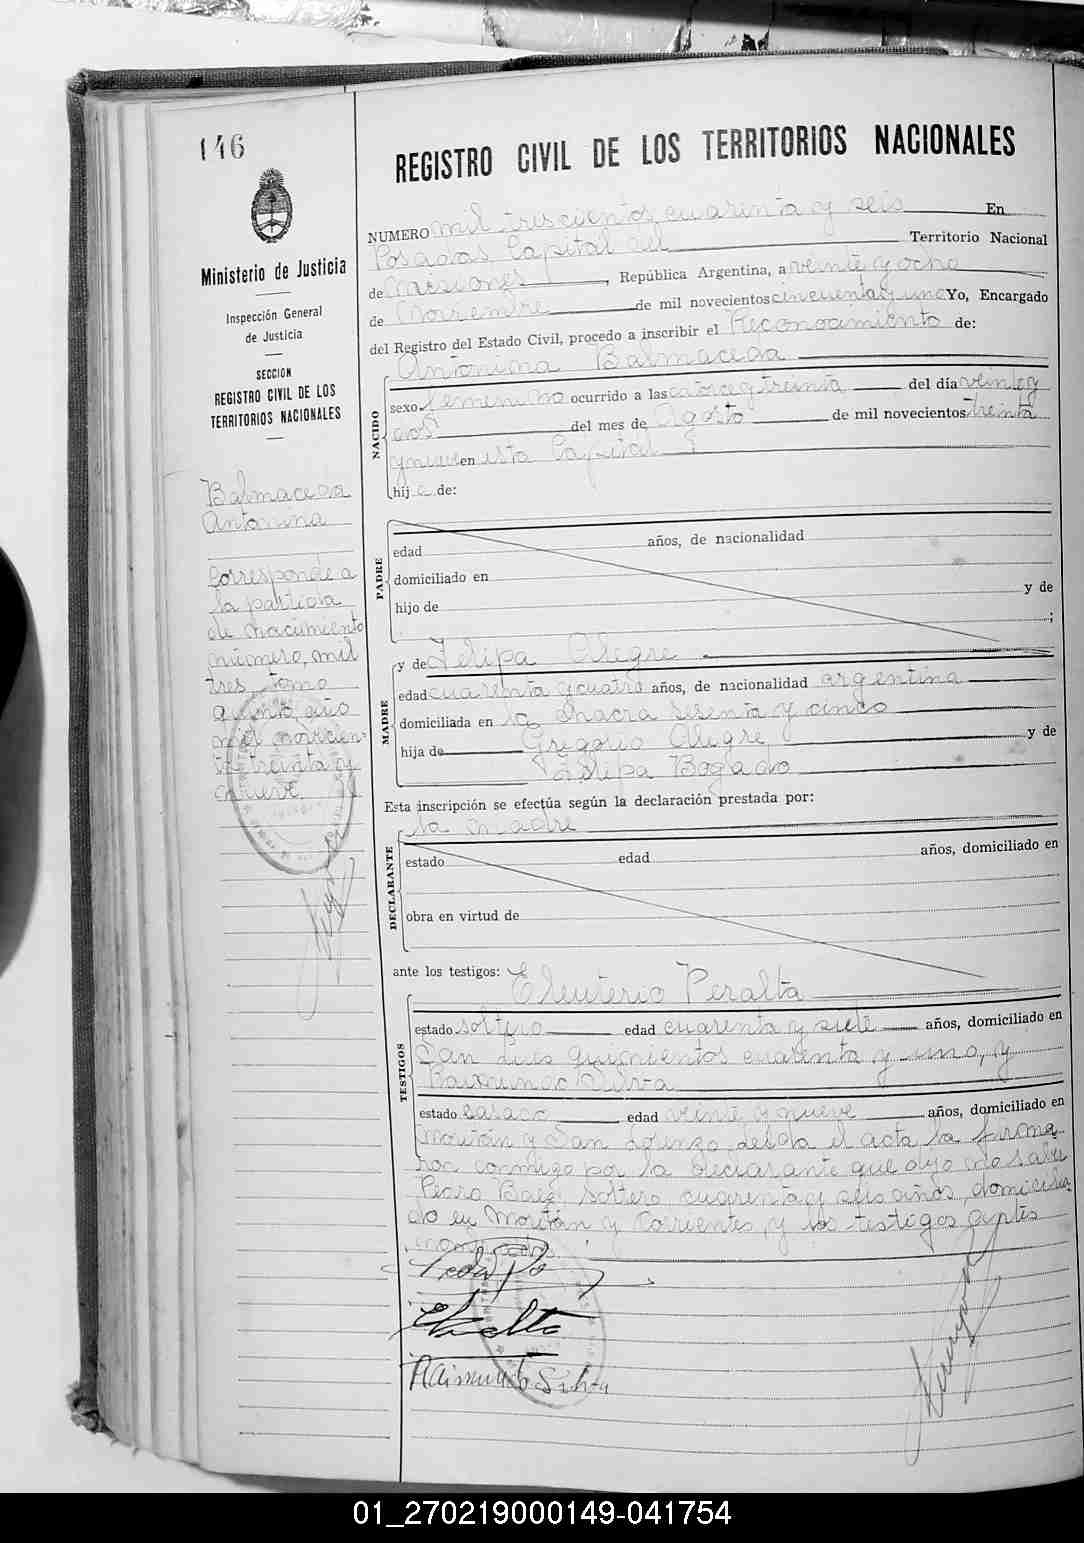 146
REGISTRO CIVIL DE LOS TERRITORIOS NACIONALES
Ministerio de Justicia
Inspección General
de Justicia
SECCION
REGISTRO CIVIL DE LOS
TERRITORIOS NACIONALES
Balmaceda
Antonina
Corresponde a
la partida
de nacimiento
número, mil
tres tomo
quinto, año
mil novecien-
tos treinta y
nueve.
NUMERO mil trescientos cuarenta y seis En
Posadas Capital del Territorio Nacional
de Misiones, República Argentina, a veinte y ocho
de Noviembre de mil novecientos cincuenta y uno Yo, Encargado
del Registro del Estado Civil, procedo a inscribir el Reconocimiento de:
Antonina Balmaceda
NACIDO
sexo femenino ocurrido a las catorce y treinta del día veinte y
dos del mes de Agosto de mil novecientos treinta
y nueve en esta Capital
hija de:
PADRE
edad años, de nacionalidad
domiciliado en
hijo de y de
;
MADRE
y de Felipa Alegre
edad cuarenta y cuatro años, de nacionalidad argentina
domiciliada en la chacra sesenta y cinco
hija de Gregorio Alegre y de
Felipa Bogado
Esta inscripción se efectúa según la declaración prestada por:
la madre
DECLARANTE
estado edad años, domiciliado en
obra en virtud de
ante los testigos: Eleuterio Peralta
TESTIGOS
estado soltero edad cuarenta y siete años, domiciliado en
San Luis quinientos cuarenta y uno, y
Raimundo Silva
estado casado edad veinte y nueve años, domiciliado en
Moritán y San Lorenzo leida el acta la firma-
ron conmigo por la declarante que dijo no saber
Pedro Baez soltero cuarenta y seis años, domicilia-
do en Moritán y Corrientes, y los testigos antes
Raimundo Silva
01_270219000149-041754